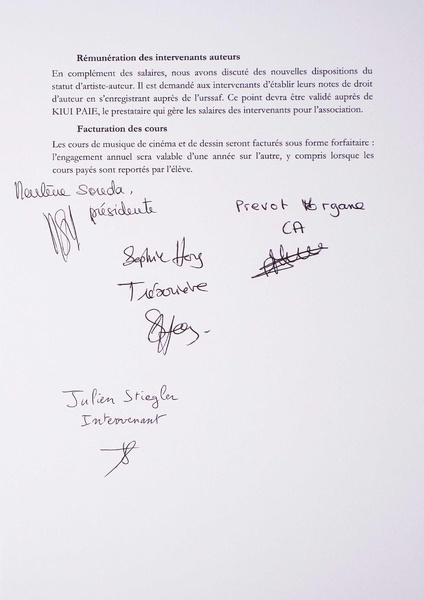 Rémunération des intervenants auteurs
En complément des salaires, nous avons discuté des nouvelles dispositions du
statut d'artiste-auteur. Il est demandé aux intervenants d'établir leurs notes de droit
d'auteur en s'enregistrant auprès de l'urssaf. Ce point devra être validé auprès de
KIUI PAIE, le prestataire qui gère les salaires des intervenants pour l'association.
Facturation des cours
Les cours de musique de cinéma et de dessin seront facturés sous forme forfaitaire :
l'engagement annuel sera valable d'une année sur l'autre, y compris lorsque les
cours payés sont reportés par l'élève.
Marlène Souda,
présidente
Prevot Morgane
CA
Sophie
Trésorière
Julien Stiegler
Intervenant